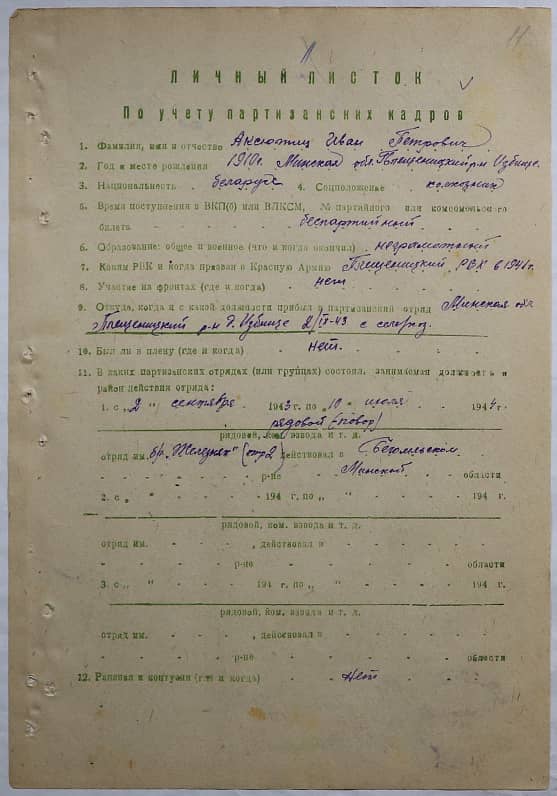 11
ЛИЧНЫЙ ЛИСТОК
По учету партизанских кадров
1. Фамилия, имя и отчество Аксютиц Иван Петрович
2. Год и место рождения 1910г. Минская обл. Плещеницкий р-н Узбице.
3. Национальность беларус 4. Соцположение колхозник
5. Время поступления в ВКП(б) или ВЛКСМ, № партийного или комсомольского
билета беспартийный
6. Образование: общее и военное (что и когда окончил) неграмотный
7. Каким РВК и когда призван в Красную Армию Плещеницкий РВК в 1941г.
8. Участие на фронтах (где и когда) нет
9. Откуда, когда и с какой должности прибыл в партизанский отряд Минская обл
Плещеницкий р-н д. Узбице 2/IX-43 с
10. Был ли в плену (где и когда) нет.
11. В каких партизанских отрядах (или группах) состоял, занимаемая должность и
район действия отряда:
1. с „2 " сентября 1943г. по „10 " июля 1944г.
рядовой (повар)
рядовой, ком. взвода и т. д.
отряд им. бр. „Железняк" (отр 2) действовал в Бегомльском
Минской р-не области
2. с „ " 194 г. по „ " 194 г.
рядовой, ком. взвода и т. д.
отряд им. , действовал в
р-не области
3. с „ " 194 г. по „ " 194 г.
рядовой, ком. взвода и т. д.
отряд им. , действовал в
р-не области
12. Ранения и контузии (где и когда) нет